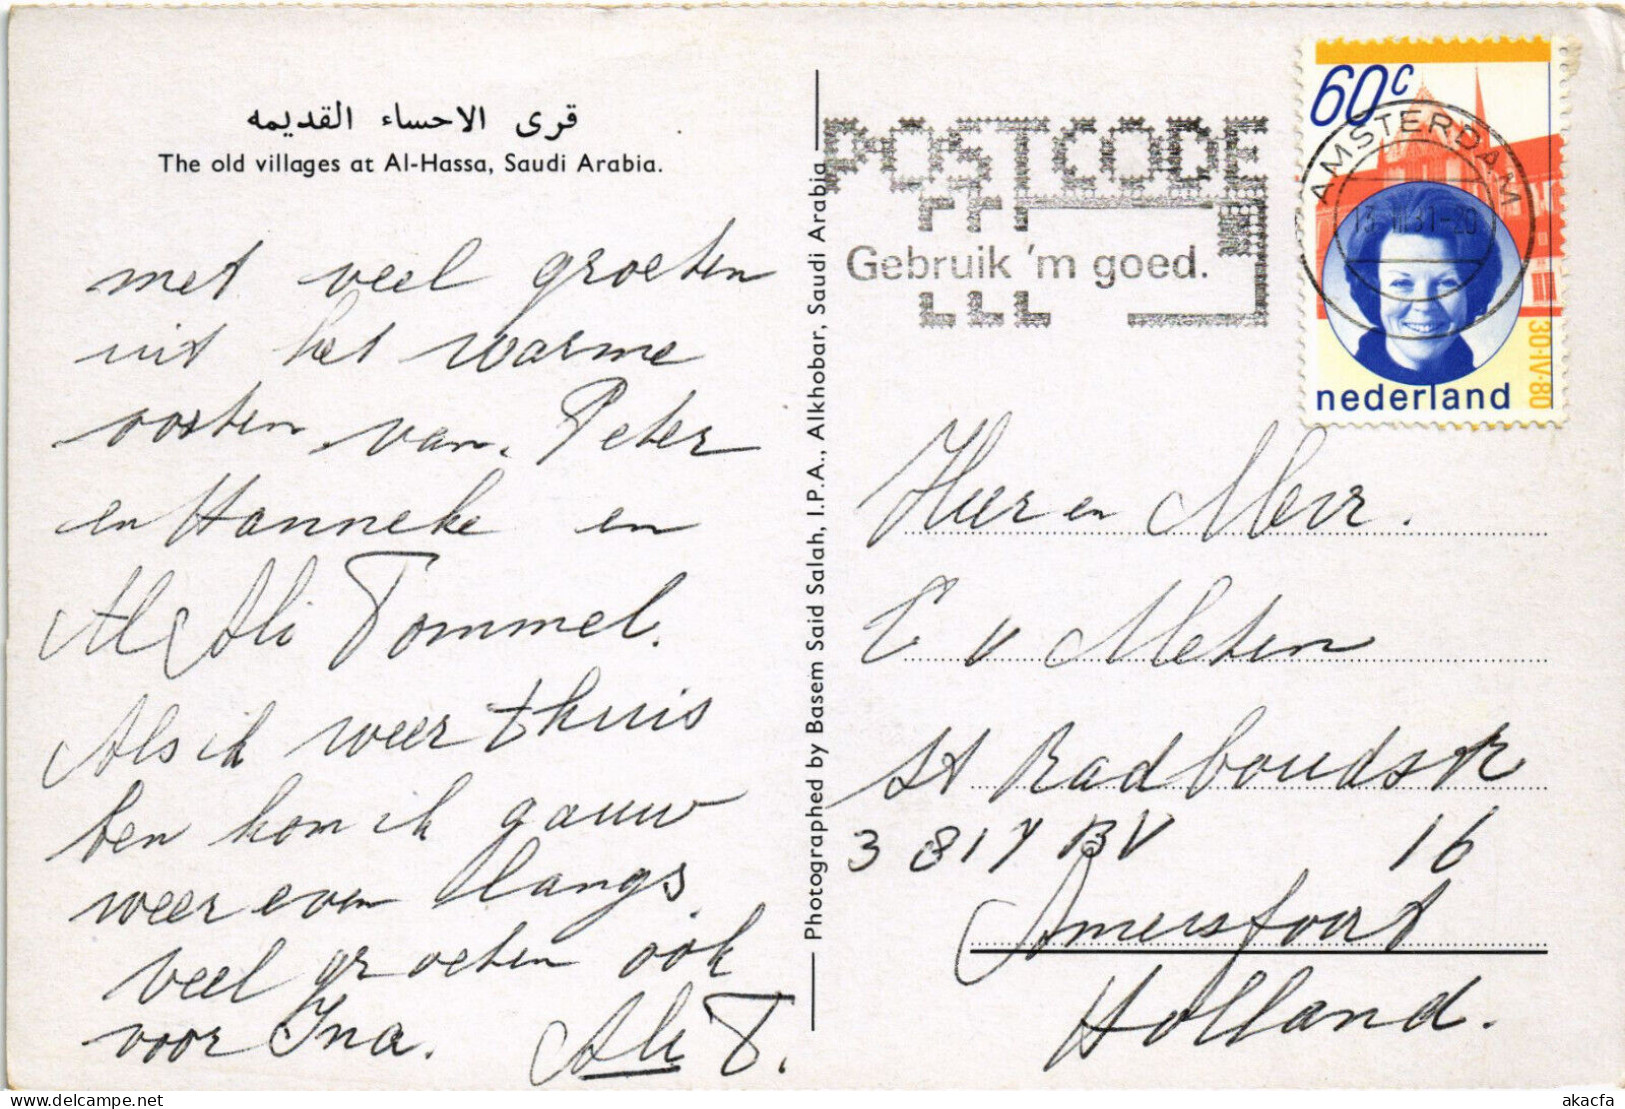 قرى الاحساء القديمه
The old villages at Al-Hassa, Saudi Arabia.
met veel groeten
uit het warme
oosten van. Peter
en Hanneke en
Ali Tommel.
Als ik weer thuis
ben kom ik gauw
weer even langs.
veel groeten ook
voor Ina. Ali T.
Photographed by Basem Said Salah, I.P.A., Alkhobar, Saudi Arabia
POSTCODE
Gebruik 'm goed.
60c
AMSTERDAM
30·IV·80
nederland
Heer en Mevr.
v Meten
St Radboudstr
3817 BV 16
Amersfoort
Holland.
akacfa